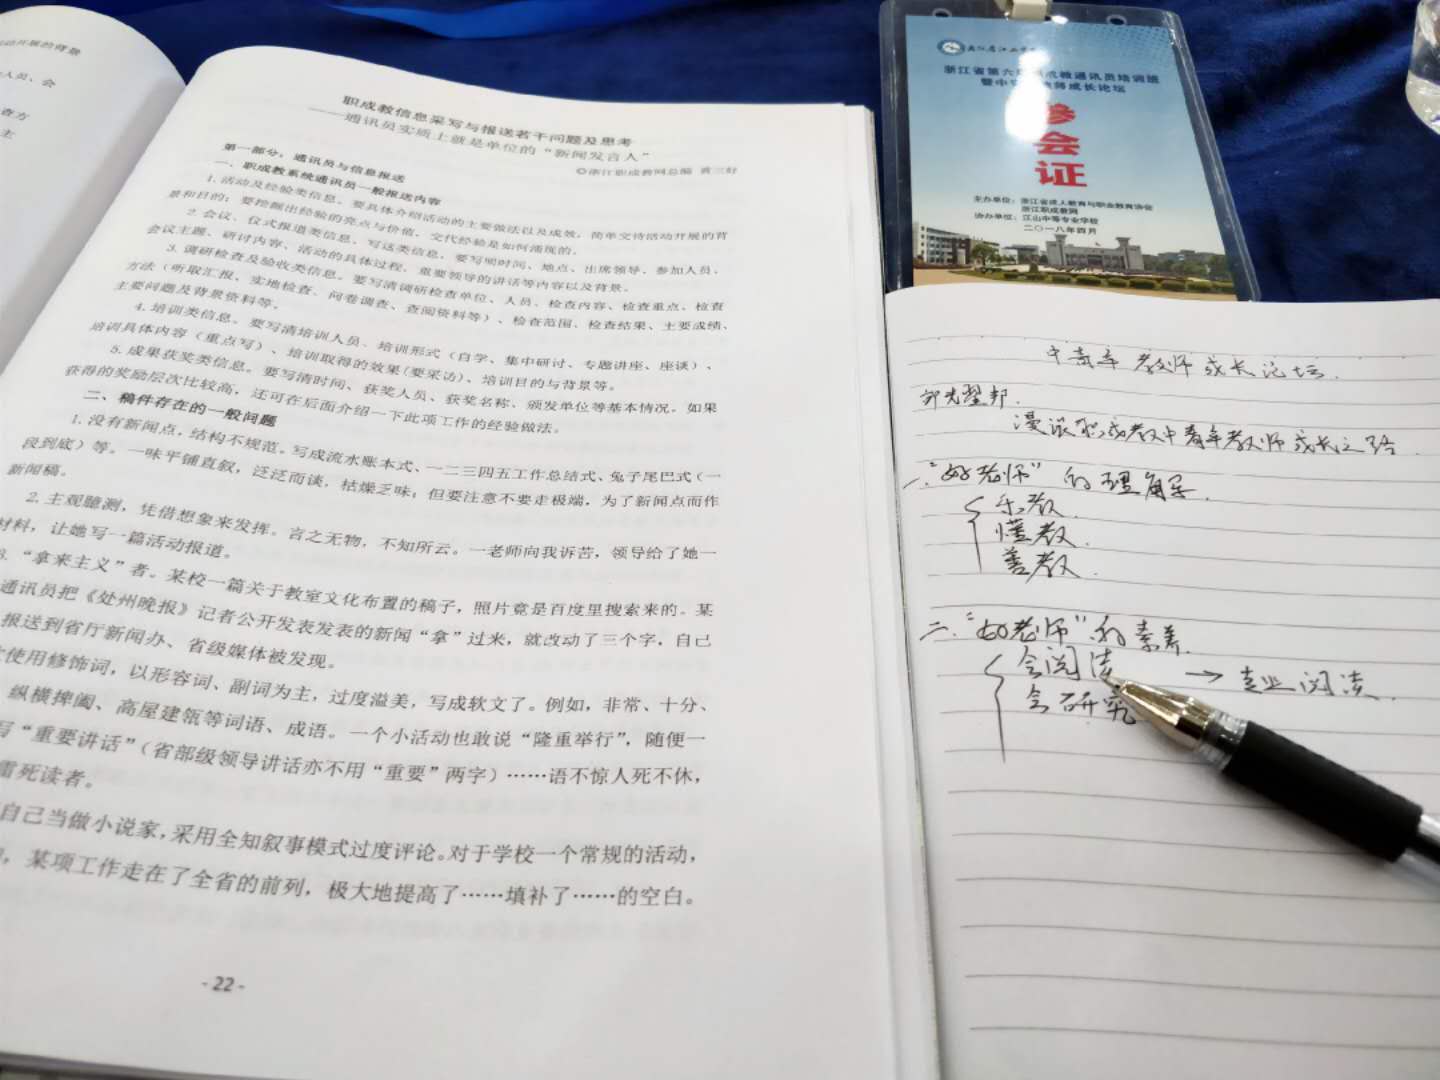 动开展的背景
人员、会
查方
主
职成教信息采写与报送若干问题及思考
——通讯员实质上就是单位的“新闻发言人”
©浙江职成教网总编 黄三好
第一部分，通讯员与信息报送
一、职成教系统通讯员一般报送内容
1. 活动及经验类信息。要具体介绍活动的主要做法以及成效，简单交待活动开展的背
景和目的；要挖掘出经验的亮点与价值，交代经验是如何涌现的。
2. 会议、仪式报道类信息。写这类信息，要写明时间、地点、出席领导、参加人员、
会议主题、研讨内容、活动的具体过程、重要领导的讲话等内容以及背景。
3. 调研检查及验收类信息。要写清调研检查单位、人员、检查内容、检查重点、检查
方法（听取汇报、实地检查、问卷调查、查阅资料等）、检查范围、检查结果、主要成绩、
主要问题及背景资料等。
4. 培训类信息。要写清培训人员、培训形式（自学、集中研讨、专题讲座、座谈）、
培训具体内容（重点写）、培训取得的效果(要采访)、培训目的与背景等。
5. 成果获奖类信息。要写清时间、获奖人员、获奖名称、颁发单位等基本情况。如果
获得的奖励层次比较高，还可在后面介绍一下此项工作的经验做法。
二、稿件存在的一般问题
1. 没有新闻点，结构不规范。写成流水账本式、一二三四五工作总结式、兔子尾巴式（一
段到底）等。一味平铺直叙，泛泛而谈，枯燥乏味；但要注意不要走极端，为了新闻点而作
新闻稿。
2. 主观臆测，凭借想象来发挥。言之无物，不知所云。一老师向我诉苦，领导给了她一
材料，让她写一篇活动报道。
3. “拿来主义”者。某校一篇关于教室文化布置的稿子，照片竟是百度里搜索来的。某
通讯员把《处州晚报》记者公开发表发表的新闻“拿”过米，就改动了三个字，自己
报送到省厅新闻办、省级媒体被发现。
使用修饰词，以形容词、副词为主，过度溢美，写成软文了。例如，非常、十分、
纵横捭阖、高屋建瓴等词语、成语。一个小活动也敢说“隆重举行”，随便一
写“重要讲话”（省部级领导讲话亦不用“重要”两字）……语不惊人死不休，
雷死读者。
自己当做小说家，采用全知叙事模式过度评论。对于学校一个常规的活动，
，某项工作走在了全省的前列，极大地提高了……填补了……的空白。
- 22 -
浙江省第六 职成教通讯员培训班
暨中 教师成长论坛
参
会
证
主办单位：浙江省成人教育与职业教育协会
浙江职成教网
协办单位：江山中等专业学校
二〇一八年四月
中青年教师成长论坛.
漫谈职成教中青年教师成长之路.
一.“好老师”的理解.
乐教.
懂教.
善教.
二.“好老师”的素养.
会阅读 → 专业阅读.
会研究